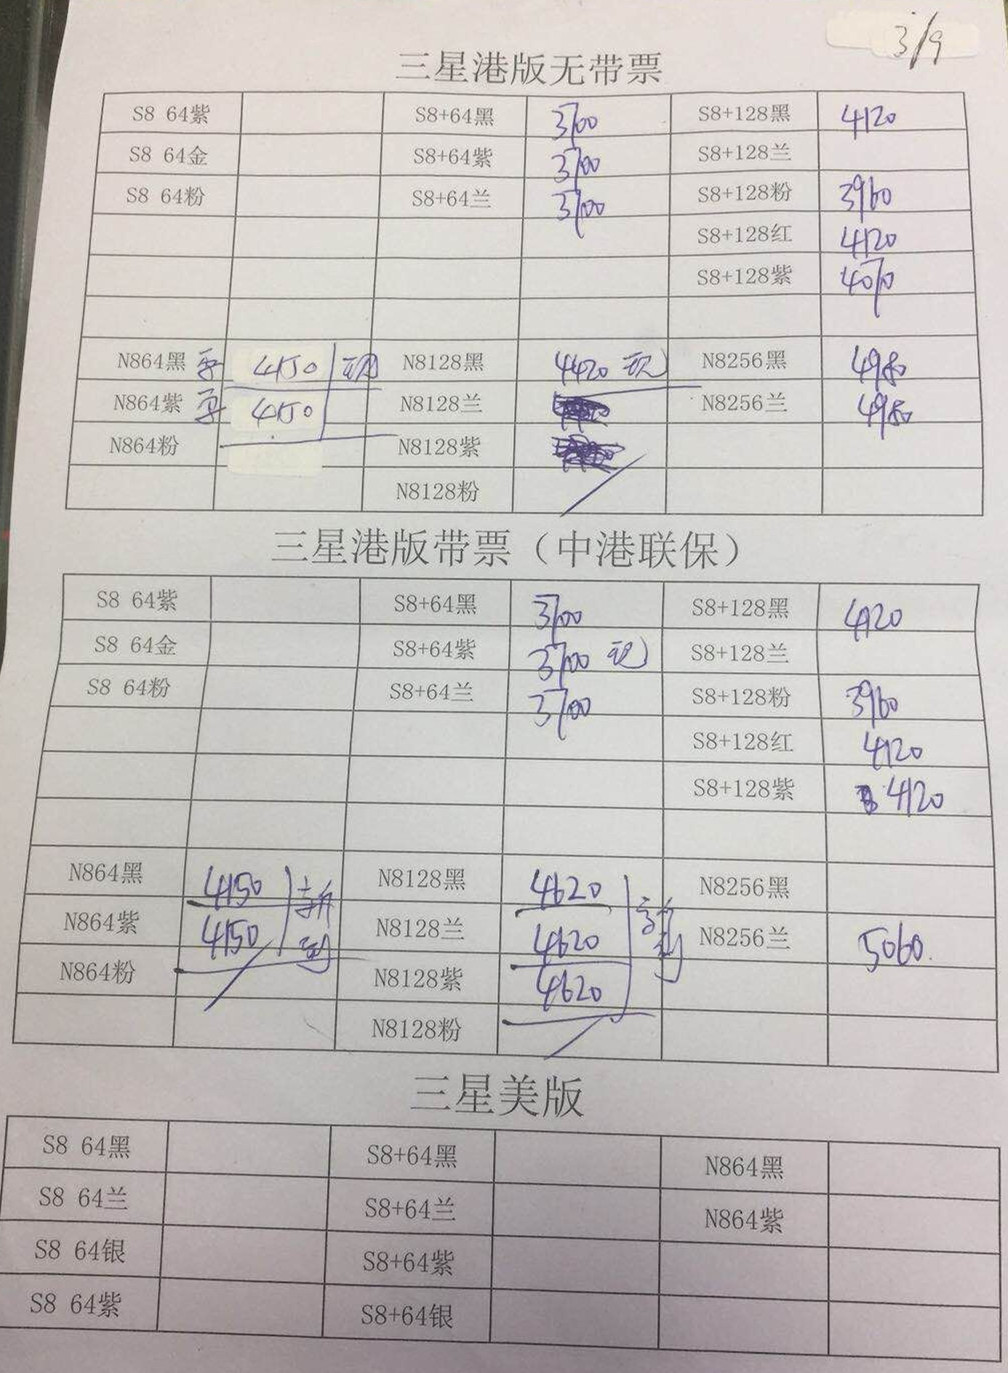 3/9
三星港版无带票
S8 64紫 S8+64黑 3700 S8+128黑 4120
S8 64金 S8+64紫 3700 S8+128兰
S8 64粉 S8+64兰 3700 S8+128粉 3960
S8+128红 4120
S8+128紫 4070
N864黑 4150 现 N8128黑 4420 现 N8256黑 4980
N864紫 4150 N8128兰 N8256兰 4980
N864粉 N8128紫
N8128粉
三星港版带票（中港联保）
S8 64紫 S8+64黑 3700 S8+128黑 4120
S8 64金 S8+64紫 3700 现 S8+128兰
S8 64粉 S8+64兰 3700 S8+128粉 3960
S8+128红 4120
S8+128紫 4120
N864黑 4150 N8128黑 4620 N8256黑
N864紫 4150 N8128兰 4620 N8256兰 5060
N864粉 N8128紫 4620
N8128粉
三星美版
S8 64黑 S8+64黑 N864黑
S8 64兰 S8+64兰 N864紫
S8 64银 S8+64紫
S8 64紫 S8+64银